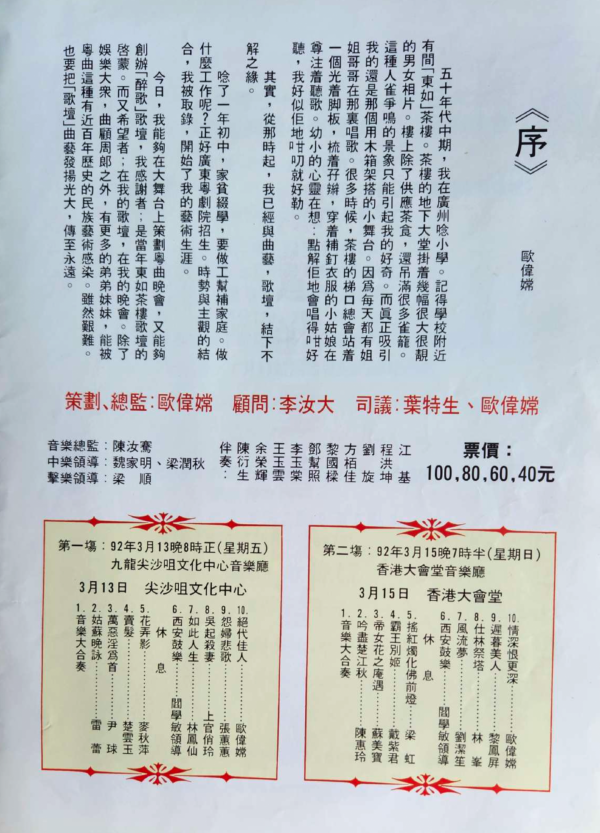 《序》
歐偉嫦
五十年代中期，我在廣州唸小學。記得學校附近
有間「東如」茶樓。茶樓的地下大堂掛着幾幅很大很靚
的男女相片。樓上除了供應茶食，還吊滿很多雀籠。
這種人雀爭鳴的景象只能引起我的好奇。而真正吸引
我的還是那個用木箱架搭的小舞台。因爲每天都有姐
姐哥哥在那裏唱歌。很多時候，茶樓的梯口總會站着
一個光着脚板，梳着孖辮，穿着補釘衣服的小姑娘在
尊注着聽歌。幼小的心靈在想：點解佢地會唱得咁好
聽，我好似佢地咁叻就好勒。
其實，從那時起，我已經與曲藝，歌壇，結下不
解之緣。
唸了一年初中，家貧綴學，要做工幫補家庭。做
什麼工作呢？正好廣東粵劇院招生。時勢與主觀的結
合，我被取錄，開始了我的藝術生涯。
今日，我能夠在大舞台上策劃粵曲晚會，又能夠
創辦「醉歌」歌壇，我感謝者；是當年東如茶樓歌壇的
啓蒙。而又希望者；在我的歌壇，在我的晚會。除了
娛樂大衆，曲顧周郎之外，有更多的弟弟妹妹，能被
粵曲這種有近百年歷史的民族藝術感染。雖然艱難。
也要把「歌壇」曲藝發揚光大，傳至永遠。
策劃、總監：歐偉嫦 顧問：李汝大 司議：葉特生、歐偉嫦
音樂總監：陳汝騫
中樂領導：魏家明、梁潤秋
擊樂領導：梁 順
票價：
100,80,60,40元
江 基
程洪坤
劉 旋
方栢佳
黎國樑
鄧幫照
李玉棠
王玉雲
余榮輝
陳衍生
伴奏：
第一場：92年3月13晚8時正(星期五)
九龍尖沙咀文化中心音樂廳
3月13日 尖沙咀文化中心
1.音樂大合奏
2.姑蘇晚詠………雷 蕾
3.萬惡淫爲首………尹 球
4.賣髮………楚雲玉
5.花弄影………麥秋萍
休 息
6.西安鼓樂………閻學敏領導
7.如此人生………林鳳仙
8.吳起殺妻………上官俏玲
9.怨婦悲歌………張蕙蕙
10.絕代佳人………歐偉嫦
第二場：92年3月15晚7時半(星期日)
香港大會堂音樂廳
3月15日 香港大會堂
1.音樂大合奏
2.吟盡楚江秋………陳惠玲
3.帝女花之庵遇………蘇美寶
4.霸王別姬………戴紫君
5.搖紅燭化佛前燈………梁 虹
休 息
6.西安鼓樂………閻學敏領導
7.風流夢………劉潔笙
8.仕林祭塔………林 峯
9.遲暮美人………黎鳳屏
10.情深恨更深………歐偉嫦